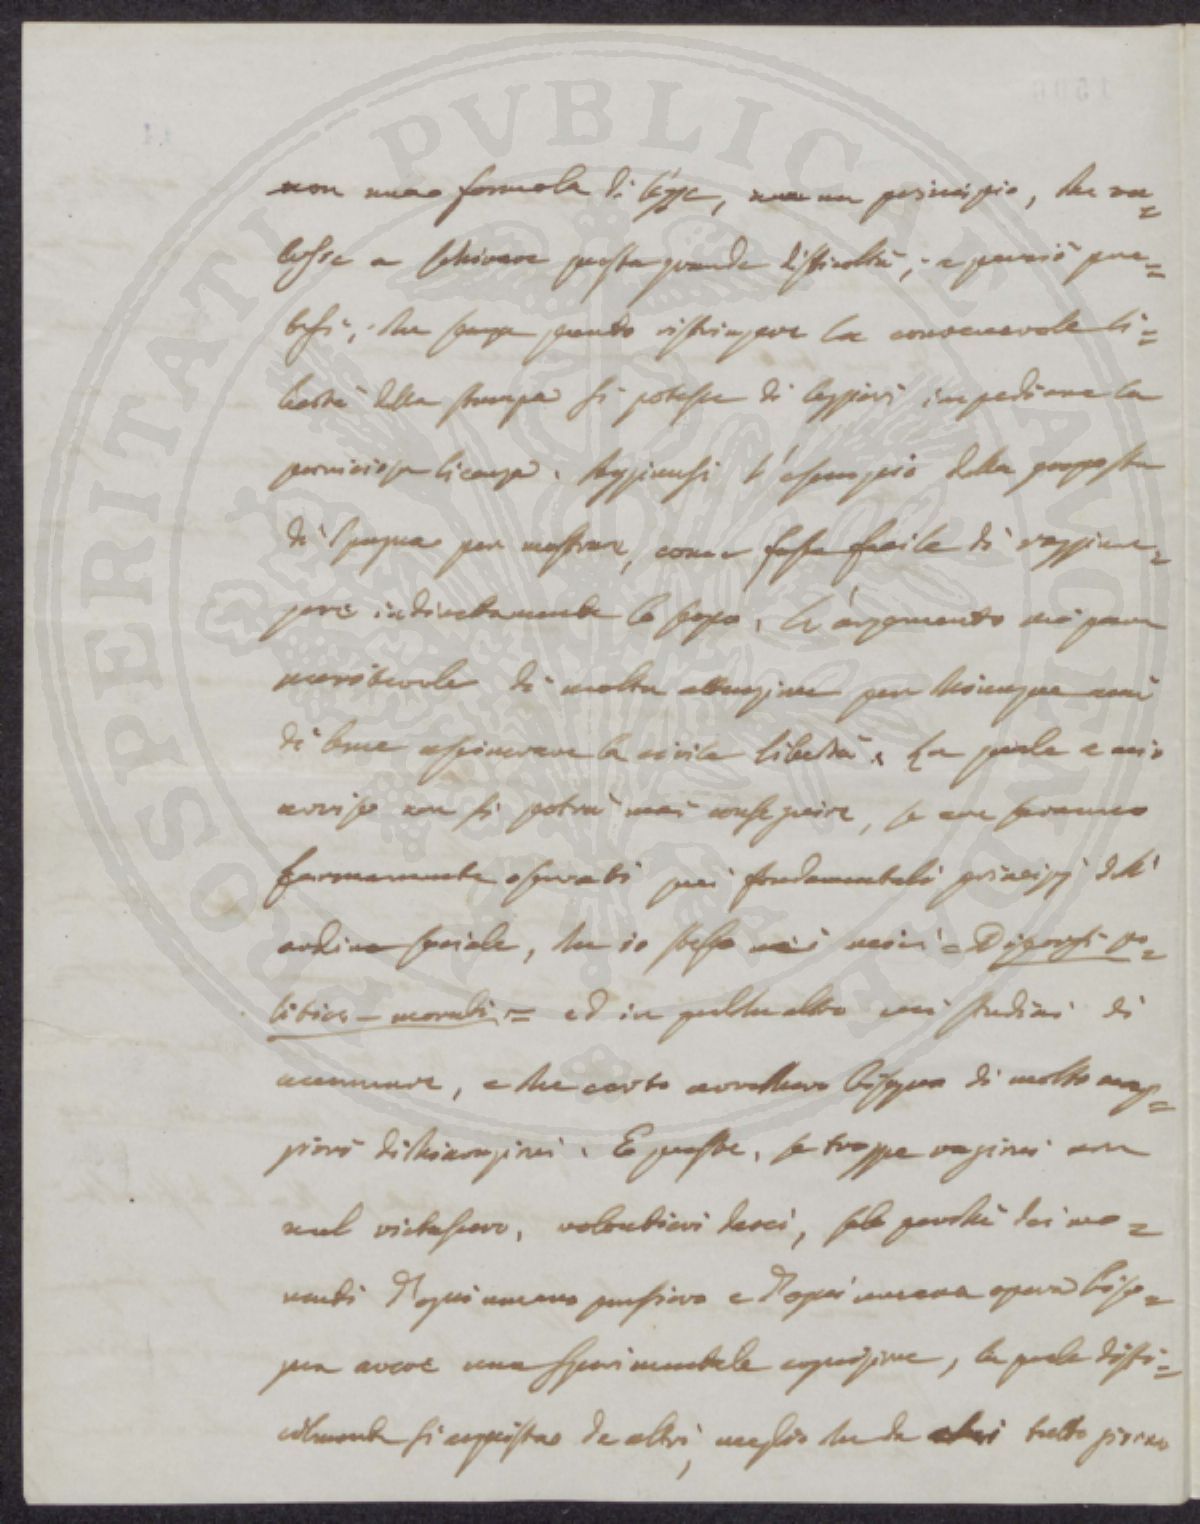 PROSPERITATI PVBLICAE
non una formola di legge, ma un principio, che va=
lesse a schivare questa grande difficoltà; e perciò pre=
che senza punto ristringere la convenevole li=
bertà della stampa si potesse di leggieri impedirne la
perniciosa licenza. Aggiunsi l'esempio della proposta
di Spagna per mostrare, come fosse facile di raggiun=
gere indirettamente lo scopo. L'argomento mi pare
meritevole di molta attenzione per chiunque ami
di bene assicurare la civile libertà. La quale a mio
avviso non si potrà mai conseguire, se non saranno
fermamente osservati quei fondamentali principj dell'
ordine sociale, che io stesso nei miei = Discorsi po=
litico-morali = ed in qualche altro mi studiai di
accennare, e che certo avrebbero bisogno di molto mag=
giori dichiarazioni. E queste, se troppe ragioni non
mel vietassero, volentieri darei, solo perchè dei mo=
menti d'ogni umano pensiero e d'ogni umana opera biso=
gna avere una sperimentale cognizione, la quale diffi=
cilmente si acquista da altri, meglio che da chi tutto giorno